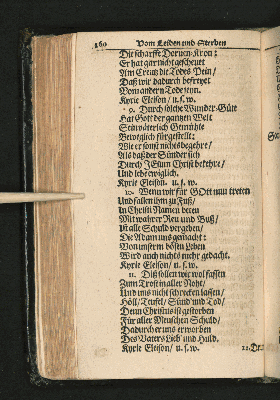 160 Vom Leiden und Sterben
Die scharffe Dornen-Kron:
Er hat gar nicht gescheuet
Am Creutz die Todes Pein/
Daß wir dadurch befreyet
Vom andern Tode seyn.
Kyrie Eleison/ u. s. w.
9. Durch solche Wunder-Güte
Hat Gott der gantzen Welt
Sein väterlich Gemühte
Beweglich fürgestellt;
Wie er sonst nichts begehre/
Als daß der Sünder sich
Durch JEsum Christ bekehre/
Und lebe ewiglich.
Kyrie Eleison. u. s. w.
10. Wenn wir für GOtt nun treten
Und fallen ihm zu Fuß/
In Christi Namen beten
Mit wahrer Reu und Buß/
Ist alle Schuld vergeben/
Die Adam uns gemacht:
Von unserm bösen Leben
Wird auch nichts mehr gedacht.
Kyrie Eleison/ u. s. w.
11. Diß sollen wir wol fassen
Zum Trost in aller Noht/
Und uns nicht schrecken lassen/
Höll/ Teufel/ Sünd und Tod/
Denn Christus ist gestorben
Für aller Menschen Schuld/
Dadurch er uns erworben
Des Vaters Lieb und Huld.
Kyrie Eleison/ u. s. w.